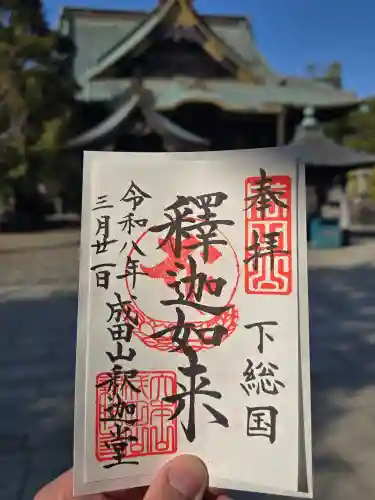 奉拝
下総国
釋迦如来
成田山釈迦堂
令和八年
三月廿一日